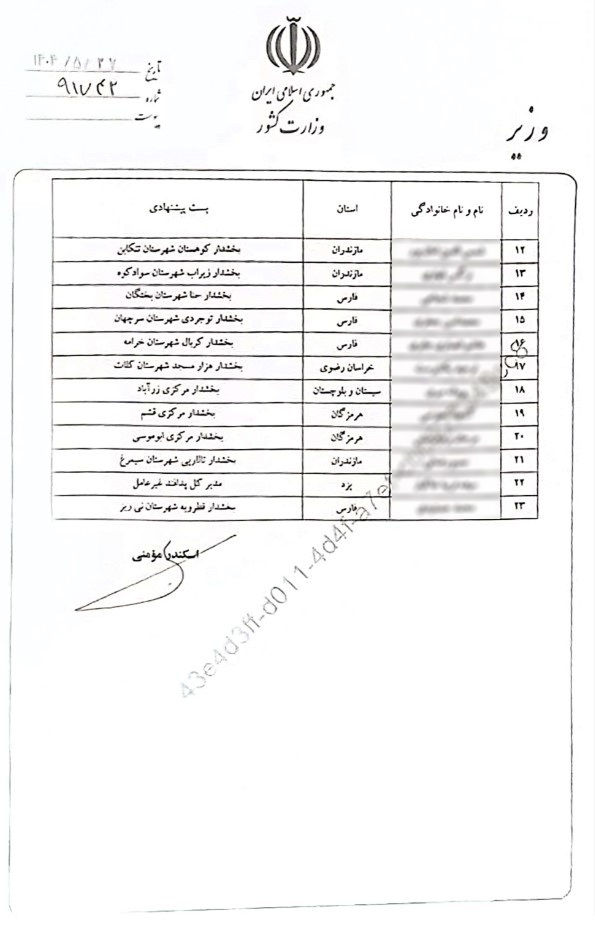 جمهوری اسلامی ایران
وزارت کشور
وزیر
تاریخ ۱۴۰۴/۵/۲۷
شماره ۹۱۷۴۲
پیوست
ردیف نام و نام خانوادگی استان پست پیشنهادی
۱۲ مازندران بخشدار کوهستان شهرستان تنکابن
۱۳ مازندران بخشدار زیراب شهرستان سوادکوه
۱۴ فارس بخشدار حنا شهرستان بختگان
۱۵ فارس بخشدار توجردی شهرستان سرچهان
۱۶ فارس بخشدار کربال شهرستان خرامه
۱۷ خراسان رضوی بخشدار هزار مسجد شهرستان کلات
۱۸ سیستان و بلوچستان بخشدار مرکزی زرآباد
۱۹ هرمزگان بخشدار مرکزی قشم
۲۰ هرمزگان بخشدار مرکزی ابوموسی
۲۱ مازندران بخشدار تالارپی شهرستان سیمرغ
۲۲ یزد مدیر کل پدافند غیرعامل
۲۳ فارس بخشدار قطرویه شهرستان نی ریز
اسکندر مؤمنی
43e4d3ff-d011-4d4f-a7ef